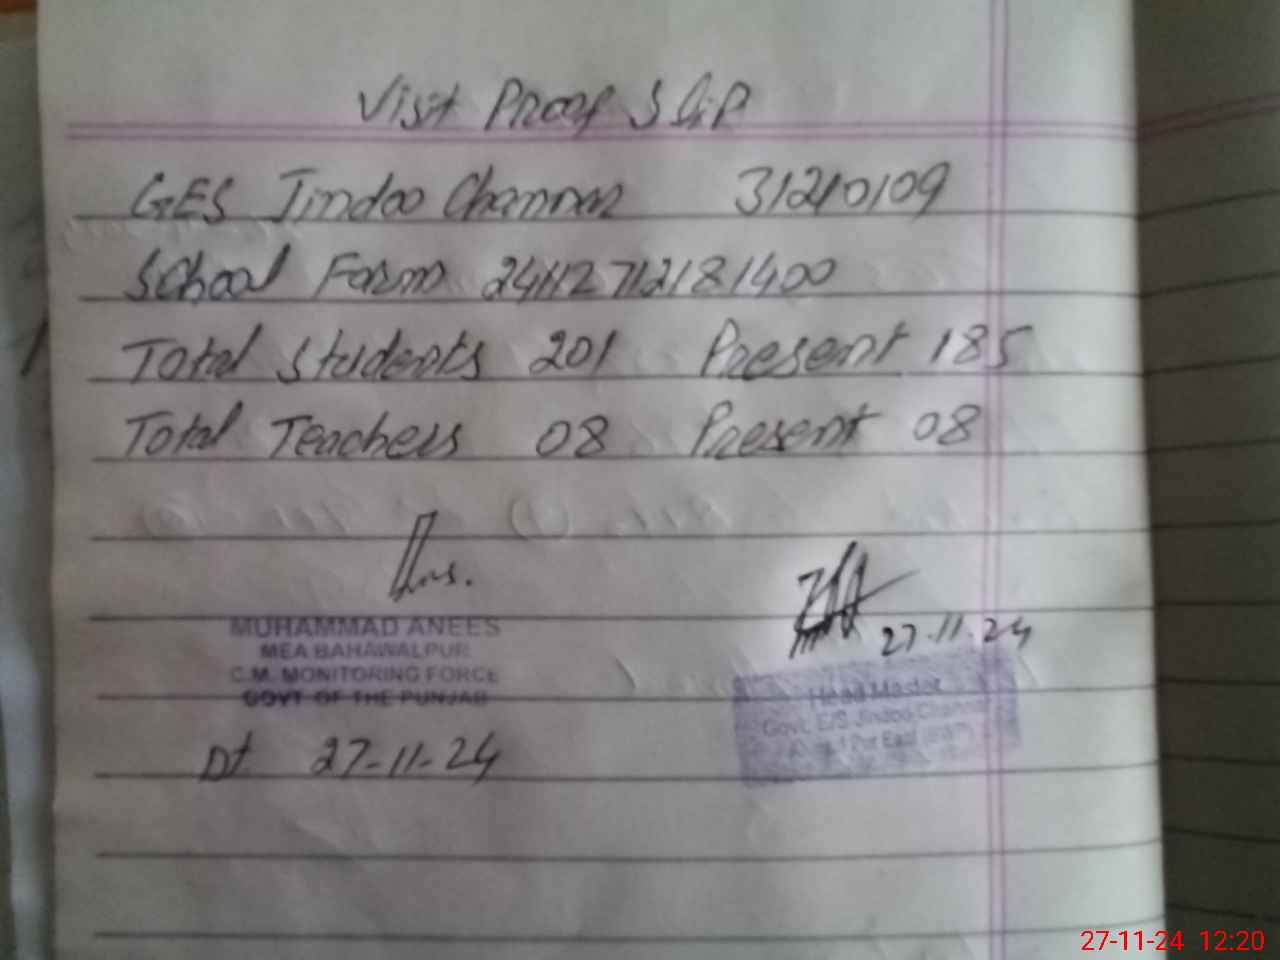 Visit Proof Slip
GES Jindoo Channar 31210109
School Form 24112712181400
Total Students 201 Present 185
Total Teachers 08 Present 08
27-11-24
MUHAMMAD ANEES
MEA BAHAWALPUR
C.M. MONITORING FORCE
GOVT OF THE PUNJAB
Head Master
Govt. E/S Jindoo Channar
Pur East
Dt 27-11-24
27-11-24 12:20